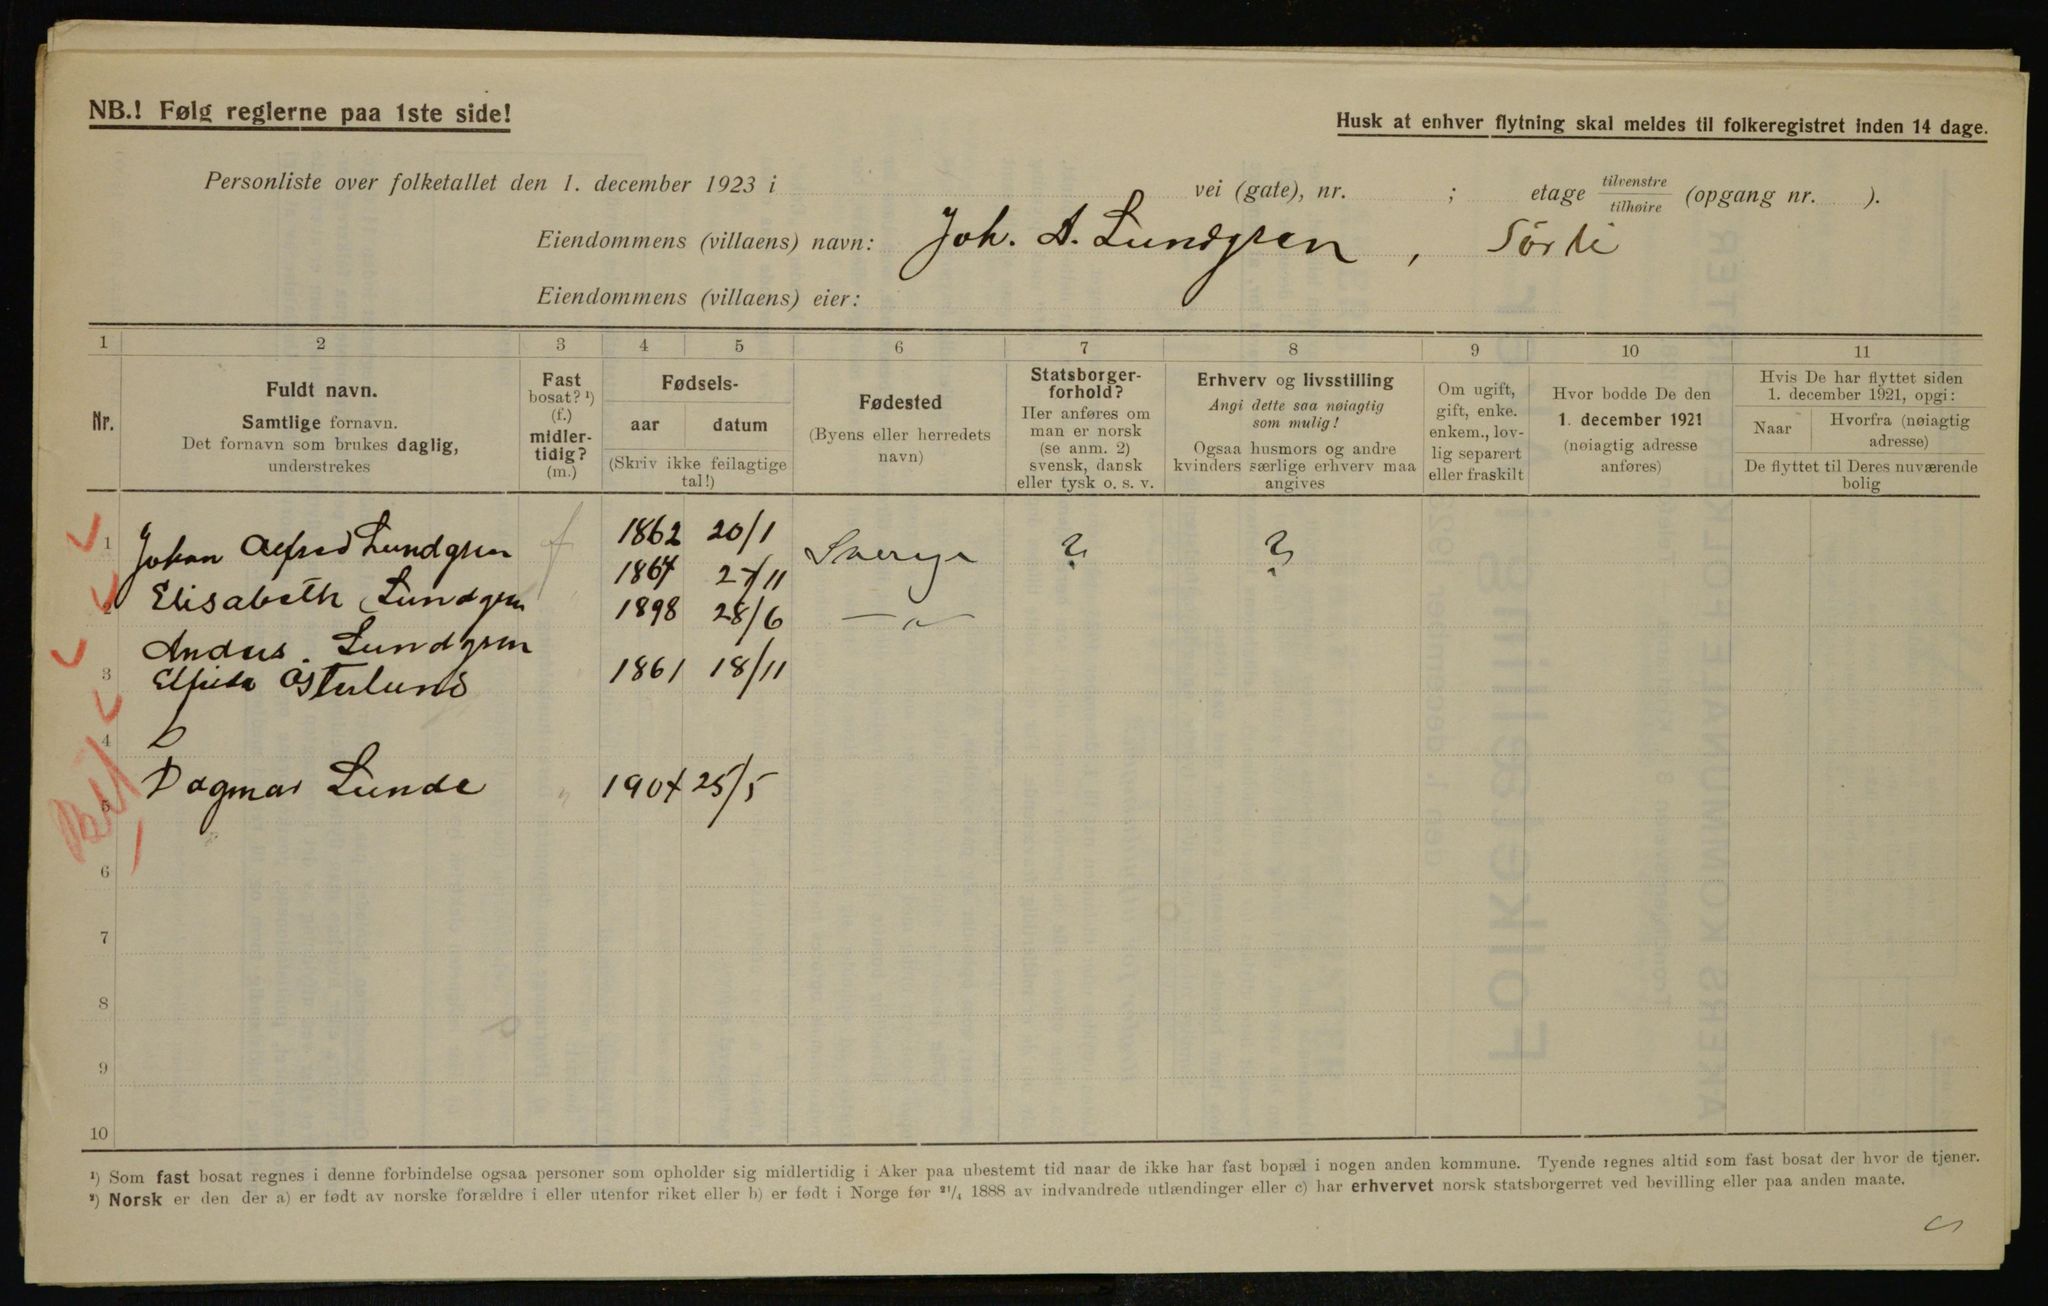 NB.! Følg reglerne paa 1ste side!
Husk at enhver flytning skal meldes til folkeregistret inden 14 dage.
Personliste over folketallet den 1. december 1923 i vei (gate), nr. ; etage tilvenstre tilhøire (opgang nr. ).
Eiendommens (villaens) navn: Joh. A. Lundgren, Sörli
Eiendommens (villaens) eier:
1 2 3 4 5 6 7 8 9 10 11
Nr.
Fuldt navn.
Samtlige fornavn.
Det fornavn som brukes daglig,
understrekes
Fast
bosat? ¹)
(f.)
midler-
tidig?
(m.)
Fødsels-
aar datum
(Skriv ikke feilagtige
tal!)
Fødested
(Byens eller herredets
navn)
Statsborger-
forhold?
Her anføres om
man er norsk
(se anm. 2)
svensk, dansk
eller tysk o. s. v.
Erhverv og livsstilling
Angi dette saa nøiagtig
som mulig!
Ogsaa husmors og andre
kvinders særlige erhverv maa
angives
Om ugift,
gift, enke.
enkem., lov-
lig separert
eller fraskilt
Hvor bodde De den
1. december 1921
(nøiagtig adresse
anføres)
Hvis De har flyttet siden
1. december 1921, opgi:
Naar Hvorfra (nøiagtig
adresse)
De flyttet til Deres nuværende
bolig
1 Johan Alfred Lundgren f 1862 20/1 Sverige ? ?
2 Elisabeth Lundgren 1864 27/11
Anders Lundgren 1898 28/6 — " —
3 Elfrida Österlund 1861 18/11
4
5 Dagmar Lunde " 1904 25/5
6
7
8
9
10
¹) Som fast bosat regnes i denne forbindelse ogsaa personer som opholder sig midlertidig i Aker paa ubestemt tid naar de ikke har fast bopæl i nogen anden kommune. Tyende regnes altid som fast bosat der hvor de tjener.
²) Norsk er den der a) er født av norske forældre i eller utenfor riket eller b) er født i Norge før 21/4 1888 av indvandrede utlændinger eller c) har erhvervet norsk statsborgerret ved bevilling eller paa anden maate.